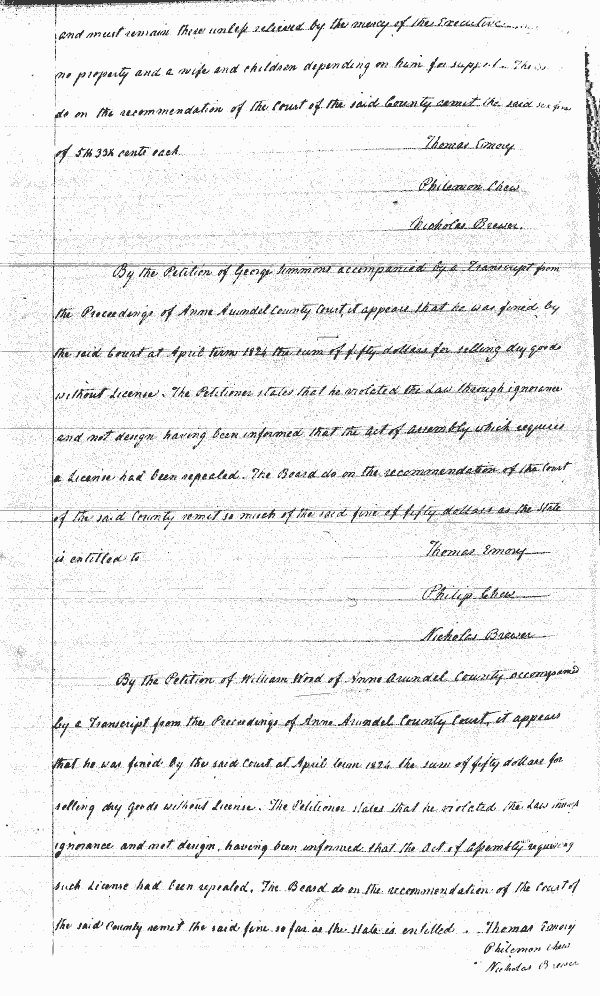 and must remain there unless relieved by the mercy of the Executive
no property and a wife and children depending on him for support. The
do on the recommendation of the Court of the said County remit the said fines
of 5 33½ cents each
Thomas Emory
Philemon Chew
Nicholas Brewer.
By the Petition of George Simmons accompanied by a Transcript from
the Proceedings of Anne Arundel County Court it appears that he was fined by
the said Court at April term 1824 the sum of fifty dollars for selling dry goods
without License. The Petitioner states that he violated the Law through ignorance
and not design having been informed that the act of assembly which requires
a License had been repealed. The Board do on the recommendation of the Court
of the said County remit so much of the said fine of fifty dollars as the State
is entitled to
Thomas Emory
Philip Chew
Nicholas Brewer
By the Petition of William Wood of Anne Arundel County accompanied
by a Transcript from the Proceedings of Anne Arundel County Court, it appears
that he was fined by the said Court at April term 1824 the sum of fifty dollars for
selling dry goods without License. The Petitioner states that he violated the Law through
ignorance and not design, having been informed that the Act of Assembly requiring
such License had been repealed. The Board do on the recommendation of the Court of
the said County remit the said fine so far as the State is entitled. Thomas Emory
Philemon Chew
Nicholas Brewer